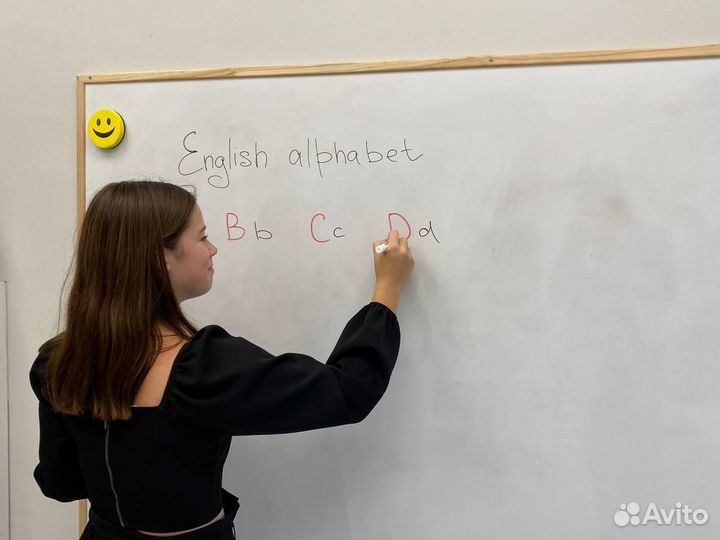 English alphabet
B b C c D d
Avito